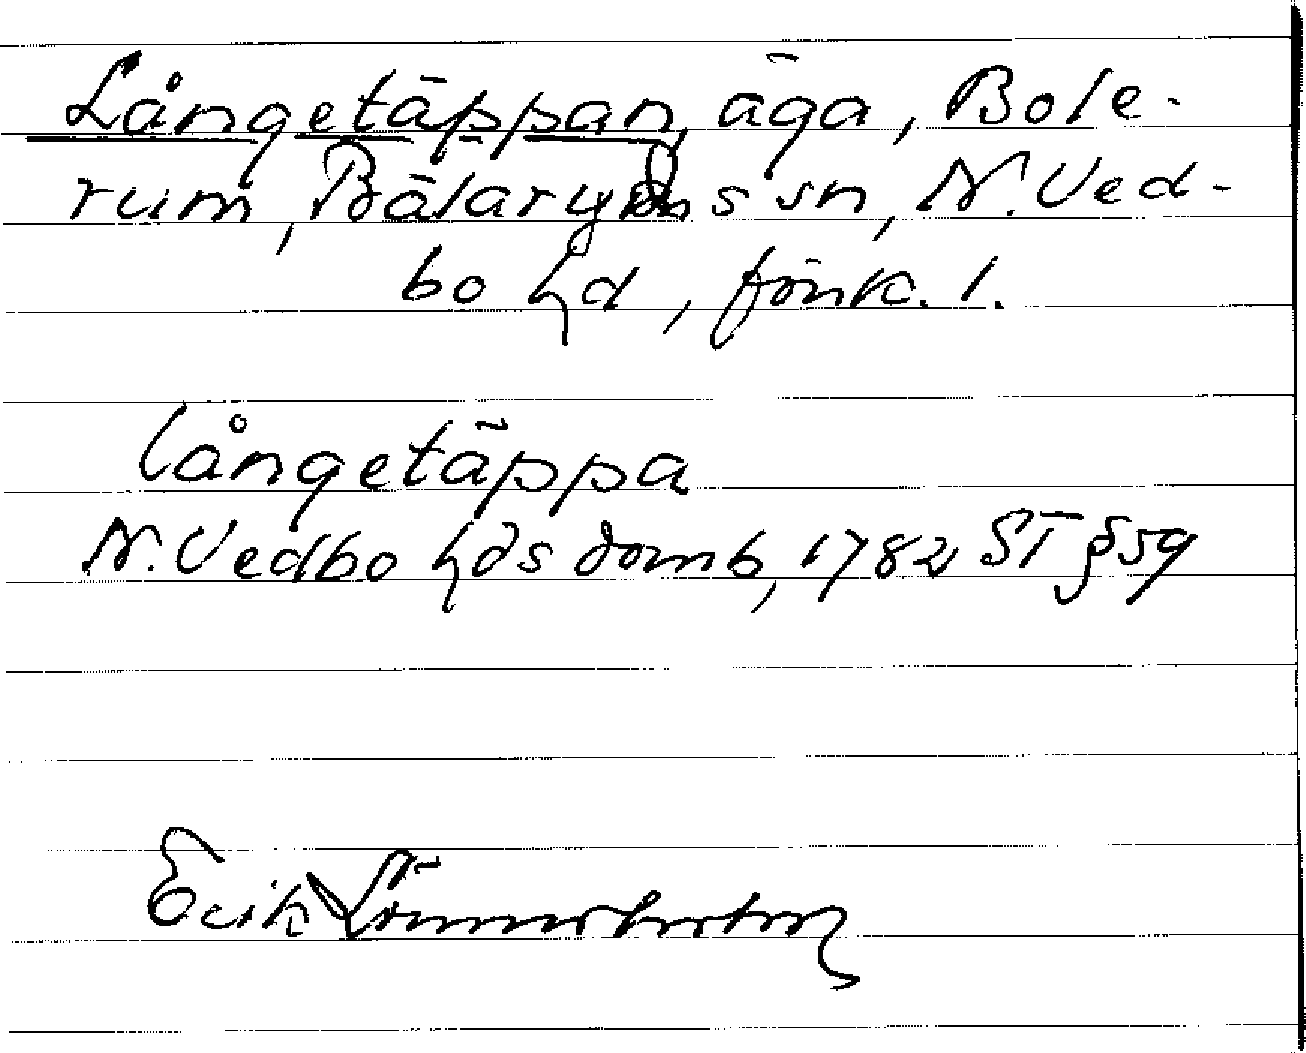 Långetäppan, äga, Bole-
rum, Bälaryds sn, N. Ved-
bo hd, Jönk. l.
långetäppa
N. Vedbo hds domb, 1782 ST § 59
Erik